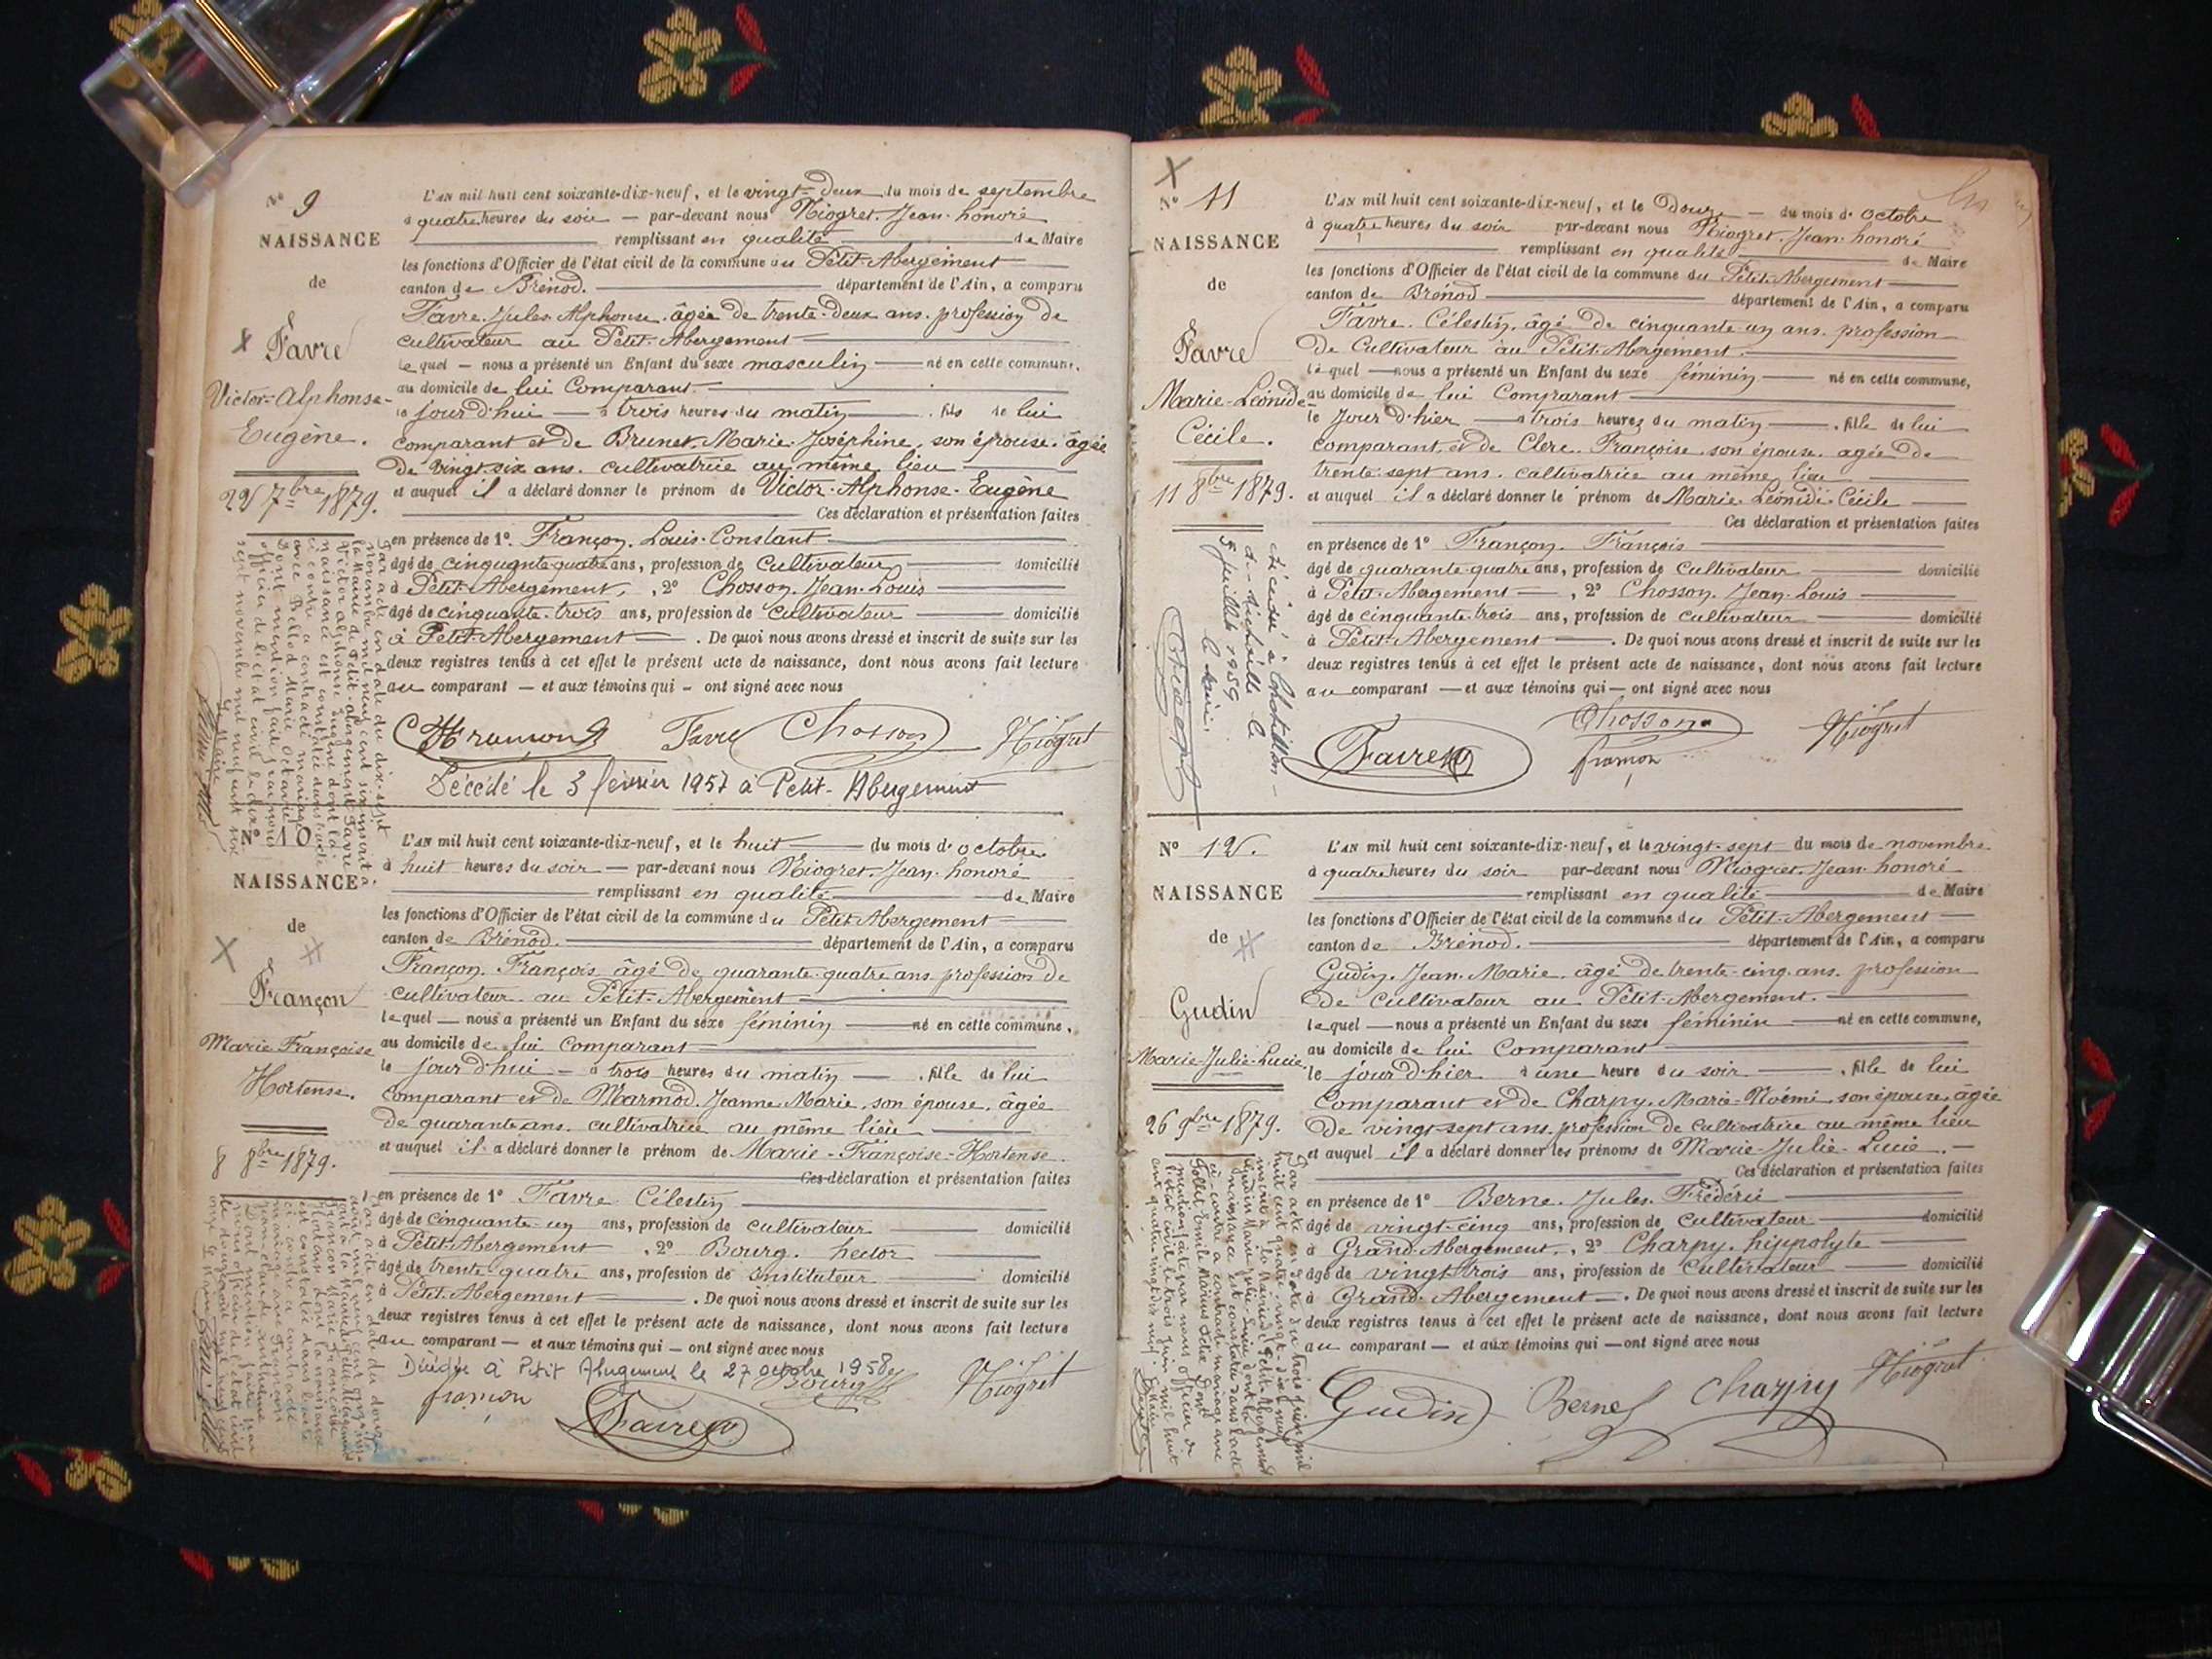 N° 9
NAISSANCE
de
Favre
Victor-Alphonse-
Eugène.
22 7bre 1879.
L'AN mil huit cent soixante-dix-neuf, et le vingt-deux du mois de septembre
à quatre heures du soir — par-devant nous Niogret. Jean-honoré
remplissant en qualité de Maire
les fonctions d'Officier de l'état civil de la commune du Petit-Abergement
canton de Brénod. département de l'Ain, a comparu
Favre. Jules Alphonse. âgée de trente-deux ans. profession de
cultivateur au Petit-Abergement
lequel — nous a présenté un Enfant du sexe masculin — né en cette commune,
au domicile de lui Comparant
le jour d'hui — à trois heures du matin — . fils de lui
comparant et de Brunet. Marie-Joséphine. son épouse. âgée
de vingt-six ans. cultivatrice au même lieu
et auquel il a déclaré donner le prénom de Victor-Alphonse-Eugène
Ces déclaration et présentation faites
en présence de 1°. Françon. Louis-Constant
âgé de cinquante-quatre ans, profession de cultivateur domicilié
à Petit-Abergement, 2° Chosson. Jean-Louis
âgé de cinquante-trois ans, profession de cultivateur domicilié
à Petit-Abergement — . De quoi nous avons dressé et inscrit de suite sur les
deux registres tenus à cet effet le présent acte de naissance, dont nous avons fait lecture
au comparant — et aux témoins qui — ont signé avec nous
Favre Chosson Niogret
Décédé le 3 février 1957 à Petit-Abergement
Par acte en date du dix-sept
novembre mil neuf cent six inscrit à
la Mairie de Petit-Abergement Favre
Victor Alphonse Eugène dont la
naissance est constatée dans l'acte
ci-contre a contracté mariage
avec Bellod Marie Octavie
Dont mention faite par nous
officier de l'état civil le dix
sept novembre mil neuf cent six
Le Maire
N° 10
NAISSANCE
de
Françon
Marie Françoise
Hortense.
8 8bre 1879.
L'AN mil huit cent soixante-dix-neuf, et le huit du mois d'octobre
à huit heures du soir — par-devant nous Niogret. Jean-honoré
remplissant en qualité de Maire
les fonctions d'Officier de l'état civil de la commune du Petit-Abergement
canton de Brénod. département de l'Ain, a comparu
Françon. François âgé de quarante-quatre ans. profession de
cultivateur au Petit-Abergement
lequel — nous a présenté un Enfant du sexe féminin — né en cette commune,
au domicile de lui Comparant
le jour d'hui — à trois heures du matin — . fille de lui
comparant et de Marmod. Jeanne-Marie. son épouse. âgée
de quarante ans. cultivatrice au même lieu
et auquel il a déclaré donner le prénom de Marie-Françoise-Hortense.
Ces déclaration et présentation faites
en présence de 1° Favre Célestin
âgé de cinquante-un ans, profession de cultivateur domicilié
à Petit-Abergement , 2° Bourg. hector
âgé de trente quatre ans, profession de instituteur domicilié
à Petit-Abergement . De quoi nous avons dressé et inscrit de suite sur les
deux registres tenus à cet effet le présent acte de naissance, dont nous avons fait lecture
au comparant — et aux témoins qui — ont signé avec nous
Décédée à Petit Abergement le 27 octobre 1958
françon Bourg Niogret
Favre
N° 11
NAISSANCE
de
Favre
Marie-Léonide-
Cécile.
11 8bre 1879.
L'AN mil huit cent soixante-dix-neuf, et le Douze — du mois d'octobre
à quatre heures du soir par-devant nous Niogret. Jean-honoré
remplissant en qualité de Maire
les fonctions d'Officier de l'état civil de la commune du Petit-Abergement
canton de Brénod département de l'Ain, a comparu
Favre. Célestin. âgé de cinquante un ans. profession
de Cultivateur au Petit-Abergement.
lequel — nous a présenté un Enfant du sexe féminin — né en cette commune,
au domicile de lui Comparant
le jour d'hier — à trois heures du matin — . fille de lui
comparant, et de Clerc. Françoise. son épouse. âgée de
trente-sept ans. cultivatrice au même lieu
et auquel il a déclaré donner le prénom de Marie-Léonide-Cécile
Ces déclaration et présentation faites
en présence de 1° Françon. François
âgé de quarante-quatre ans, profession de cultivateur domicilié
à Petit-Abergement — , 2° Chosson. Jean-Louis
âgé de cinquante-trois ans, profession de cultivateur domicilié
à Petit-Abergement — . De quoi nous avons dressé et inscrit de suite sur les
deux registres tenus à cet effet le présent acte de naissance, dont nous avons fait lecture
au comparant — et aux témoins qui — ont signé avec nous
Favre Chosson Niogret
françon
décédée à Châtillon-
de-Michaille le
5 juillet 1959
le maire:
N° 12.
NAISSANCE
de
Gudin
Marie-Julie-Lucie.
26 9bre 1879.
L'AN mil huit cent soixante-dix-neuf, et le vingt-sept du mois de novembre
à quatre heures du soir par-devant nous Niogret. Jean-honoré
remplissant en qualité de Maire
les fonctions d'Officier de l'état civil de la commune du Petit-Abergement
canton de Brénod. département de l'Ain, a comparu
Gudin. Jean-Marie. âgé de trente-cinq ans. profession
de cultivateur au Petit-Abergement.
lequel — nous a présenté un Enfant du sexe féminin — né en cette commune,
au domicile de lui Comparant
le jour d'hier à une heure du soir — . fille de lui
Comparant et de Charpy. Marie-Noémi. son épouse. âgée
de vingt-sept ans. profession de cultivatrice au même lieu
et auquel il a déclaré donner les prénoms de Marie-Julie-Lucie.
Ces déclaration et présentation faites
en présence de 1° Berne. Jules-Frédéric
âgé de vingt-cinq ans, profession de cultivateur domicilié
à Grand-Abergement. , 2° Charpy. hippolyte
âgé de vingt-trois ans, profession de cultivateur domicilié
à Grand-Abergement — . De quoi nous avons dressé et inscrit de suite sur les
deux registres tenus à cet effet le présent acte de naissance, dont nous avons fait lecture
au comparant — et aux témoins qui — ont signé avec nous
Gudin Berne Charpy Niogret
Par acte en date du trois juin mil
huit cent quatre-vingt-dix neuf
inscrit à la Mairie de Petit-Abergement
Gudin Marie Julie Lucie dont la
naissance est constatée dans l'acte
ci-contre a contracté mariage avec